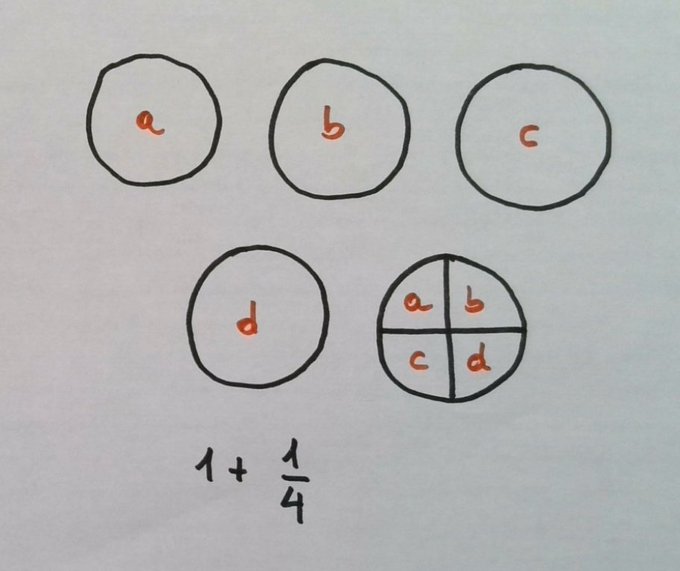 a b c
d a b
c d
1 + 1/4